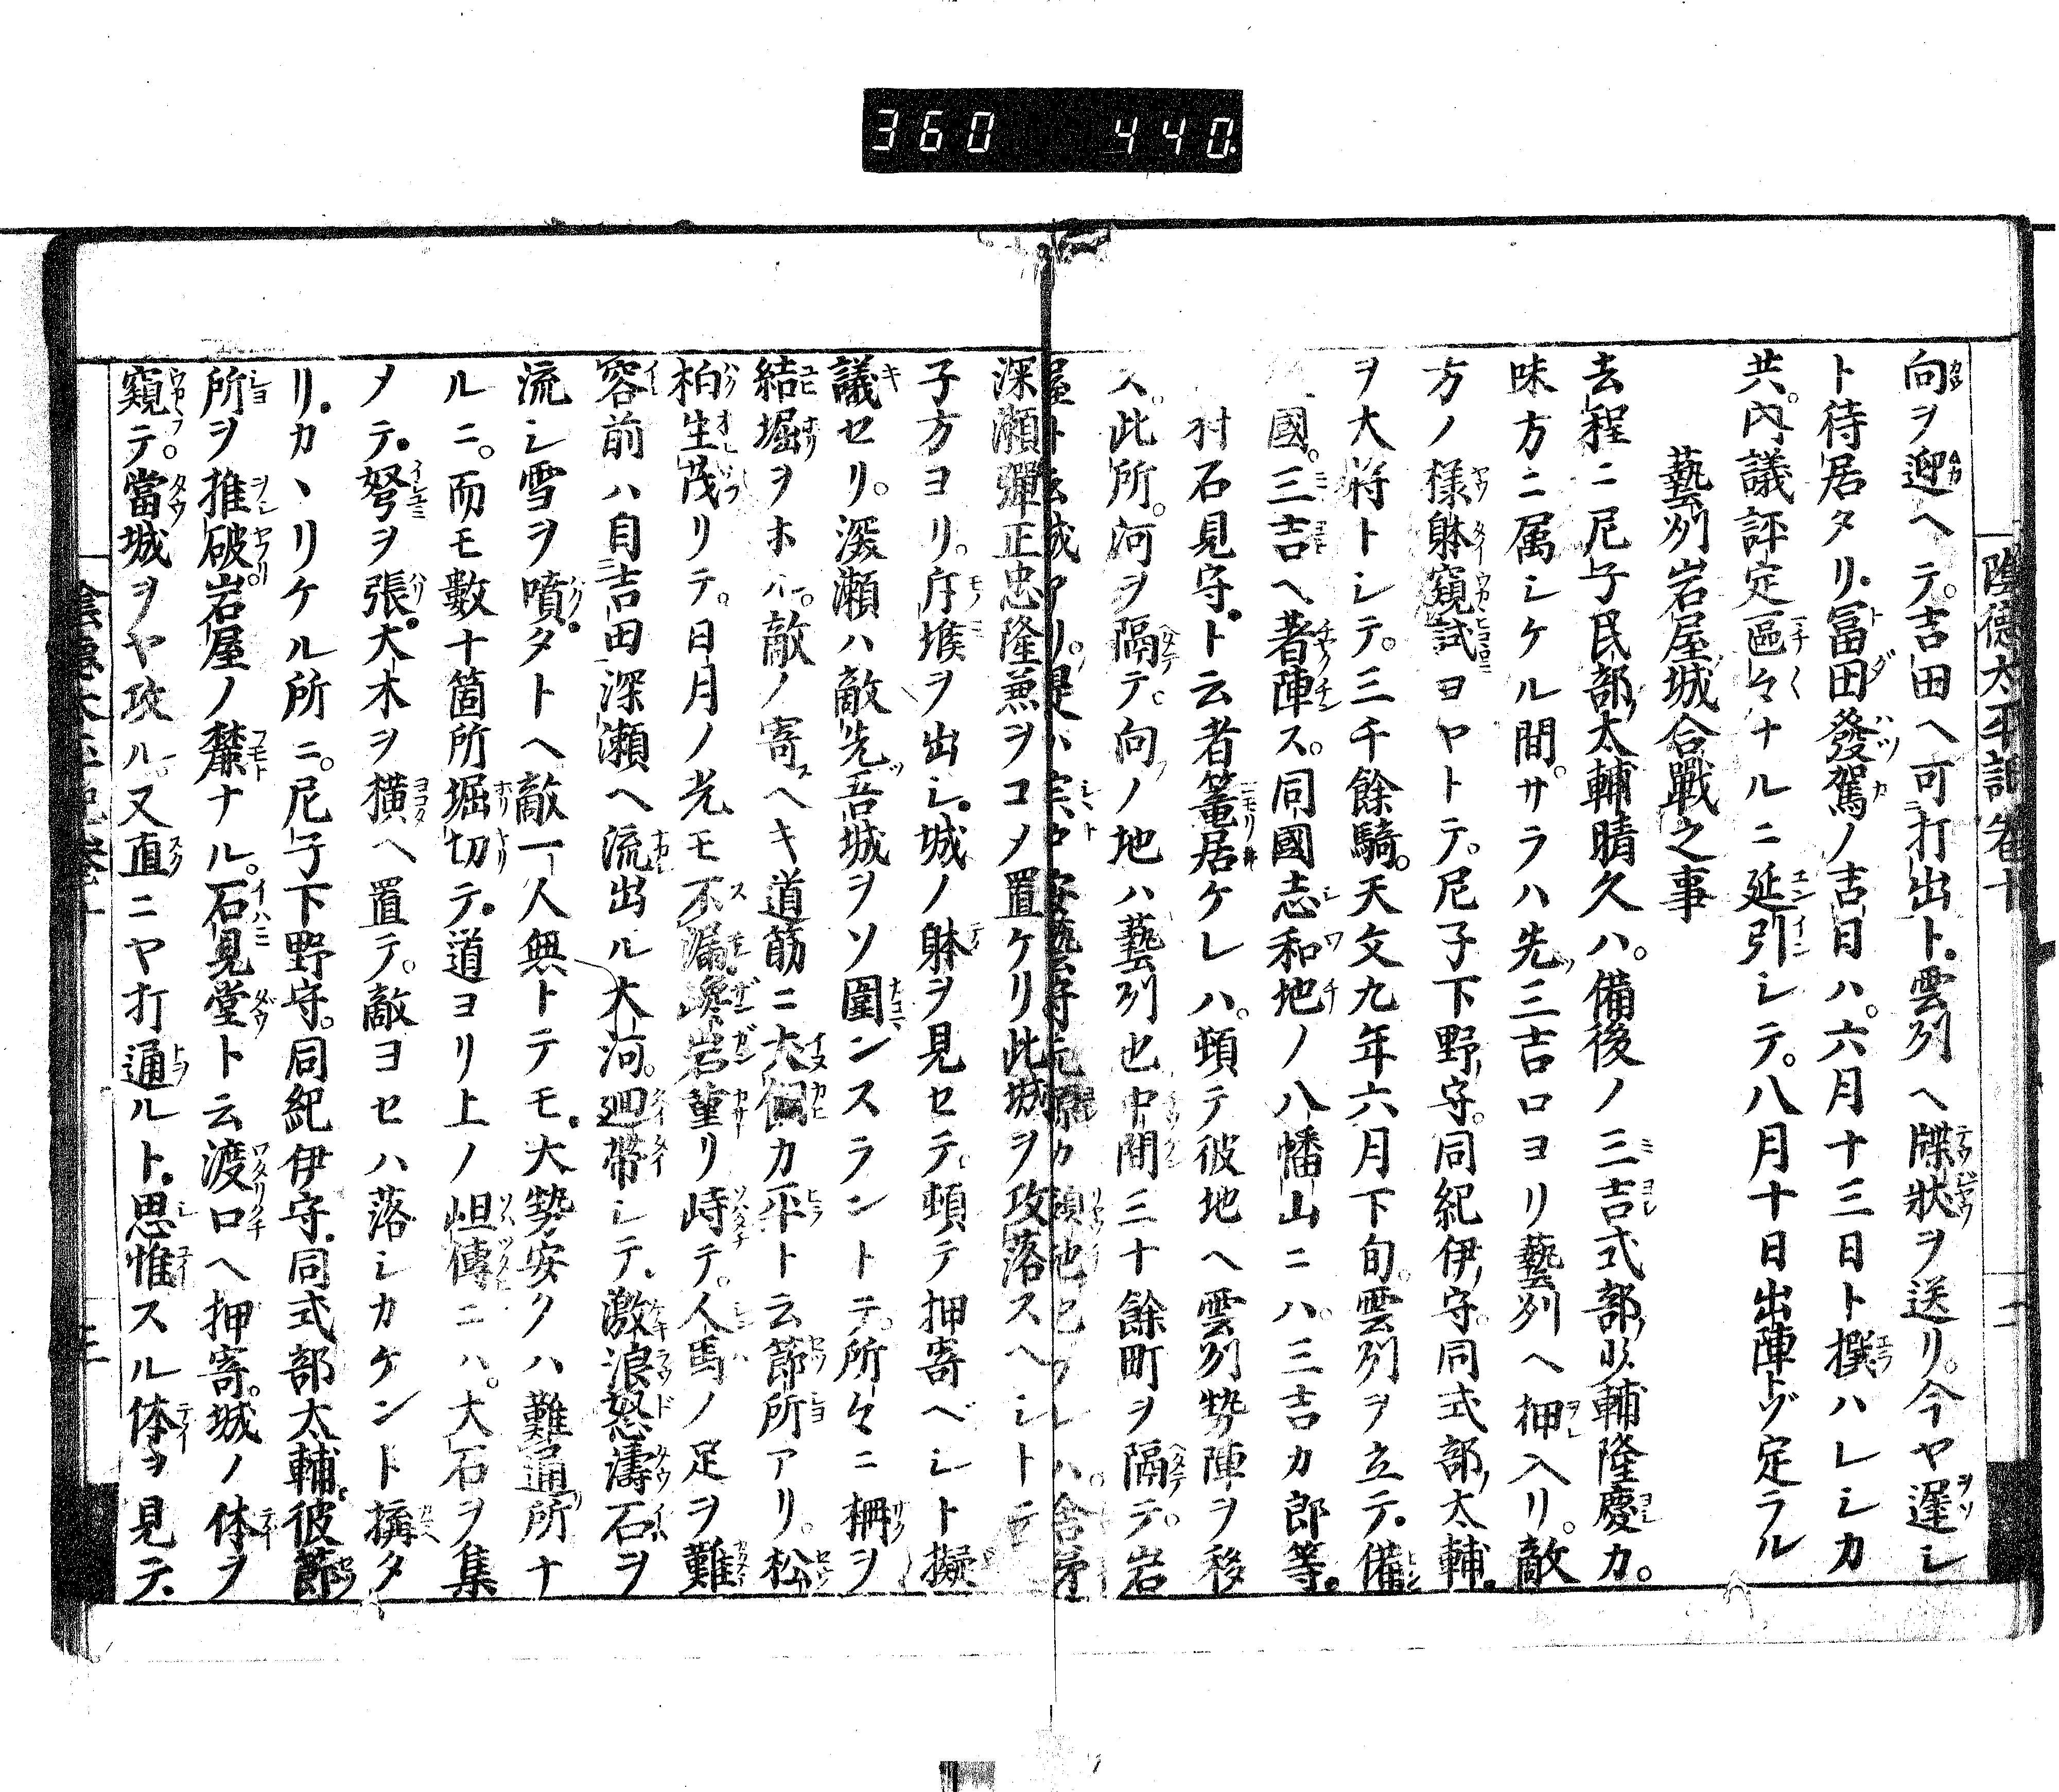 360 440
陰德太平記卷十
向ヲ迎ヘテ。吉田ヘ可打出ト。雲列ヘ牒狀ヲ送リ。今ヤ遲シ
ト待居タリ。冨田發駕ノ吉日ハ。六月十三日ト撰ハレシカ
共。內議評定區々ナルニ延引シテ。八月十日出陣トゾ定ラル
藝列岩屋城合戰之事
去程ニ尼子民部太輔晴久ハ。備後ノ三吉式部少輔隆慶カ。
味方ニ属シケル間。サラハ先三吉口ヨリ藝列ヘ押入リ。敵
方ノ様躰窺試ヨヤトテ。尼子下野守。同紀伊守。同式部太輔。
ヲ大将トシテ。三千餘騎。天文九年六月下旬。雲列ヲ立テ。備
國。三吉ヘ著陣ス。同國志和地ノ八幡山ニハ。三吉カ郎等。
村石見守。ト云者篭居ケレハ。頓テ彼地ヘ雲列勢陣ヲ移
ス。此所。河ヲ隔テ向ノ地ハ藝列也中間三十餘町ヲ隔テ。岩
屋ト云城アリ。是ハ宍戸安藝守元源カ領地
深瀬彈正忠隆兼ヲコメ置ケリ此城ヲ攻落スヘシトテ
子方ヨリ。斥堠ヲ出シ。城ノ躰ヲ見セテ。頓テ押寄ベシト擬
議セリ。深瀬ハ敵先吾城ヲソ圍ンスラントテ。所々ニ柵ヲ
結堀ヲホル。敵ノ寄ヘキ道筋ニ犬飼カ平ト云節所アリ。松
柏生茂リテ。日月ノ光モ不漏巉岩重リ峙テ。人馬ノ足ヲ難
容前ハ自吉田深瀬ヘ流出ル大河。廻帶シテ。激浪怒濤石ヲ
流シ雪ヲ噴。タトヘ敵一人無トテモ。大勢安クハ難通所ナ
ルニ。而モ數十箇所堀切テ。道ヨリ上ノ岨傳ニハ。大石ヲ集
メテ。弩ヲ張。大木ヲ横ヘ置テ。敵ヨセハ落シカケント搆タ
リ。カヽリケル所ニ。尼子下野守。同紀伊守。同式部太輔。彼節
所ヲ推破岩屋ノ麓ナル。石見堂ト云渡口ヘ押寄。城ノ体ヲ
窺テ。當城ヲヤ攻ル。又直ニヤ打通ルト。思惟スル体ヲ見テ。